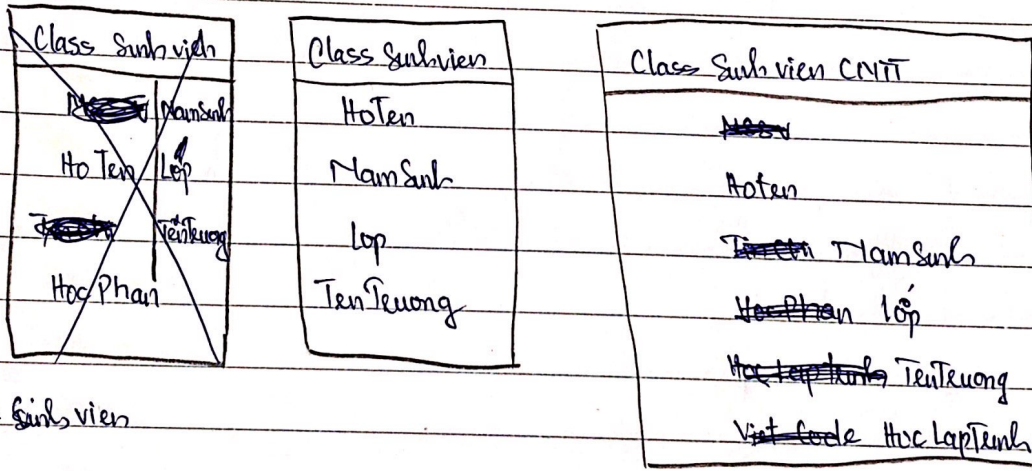 Class Sinh viên
NamSinh
Ho Ten Lớp
TênTruong
Học Phan
Class Sinhvien
HoTen
NamSinh
Lop
TenTruong
Class Sinh vien CNTT
Hoten
NamSinh
Học Phan lớp
Hoc Lap trinh TenTruong
Viet Code Hoc LapTrinh
Sinh vien